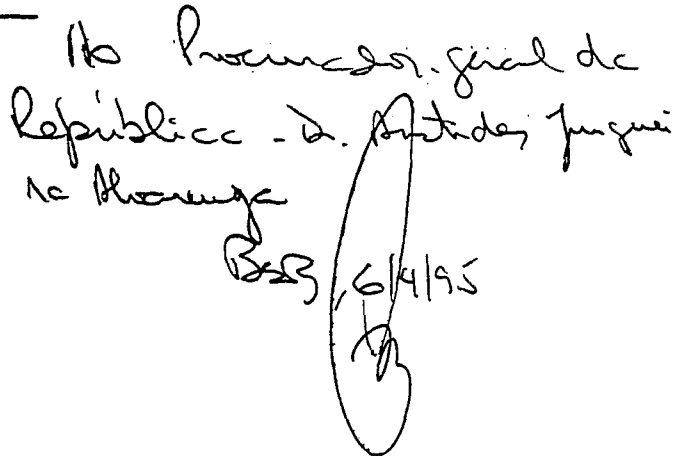 Ao Procurador-geral da
República - Dr. Aristides Junquei
ra Alvarenga
BsB, 6/4/95